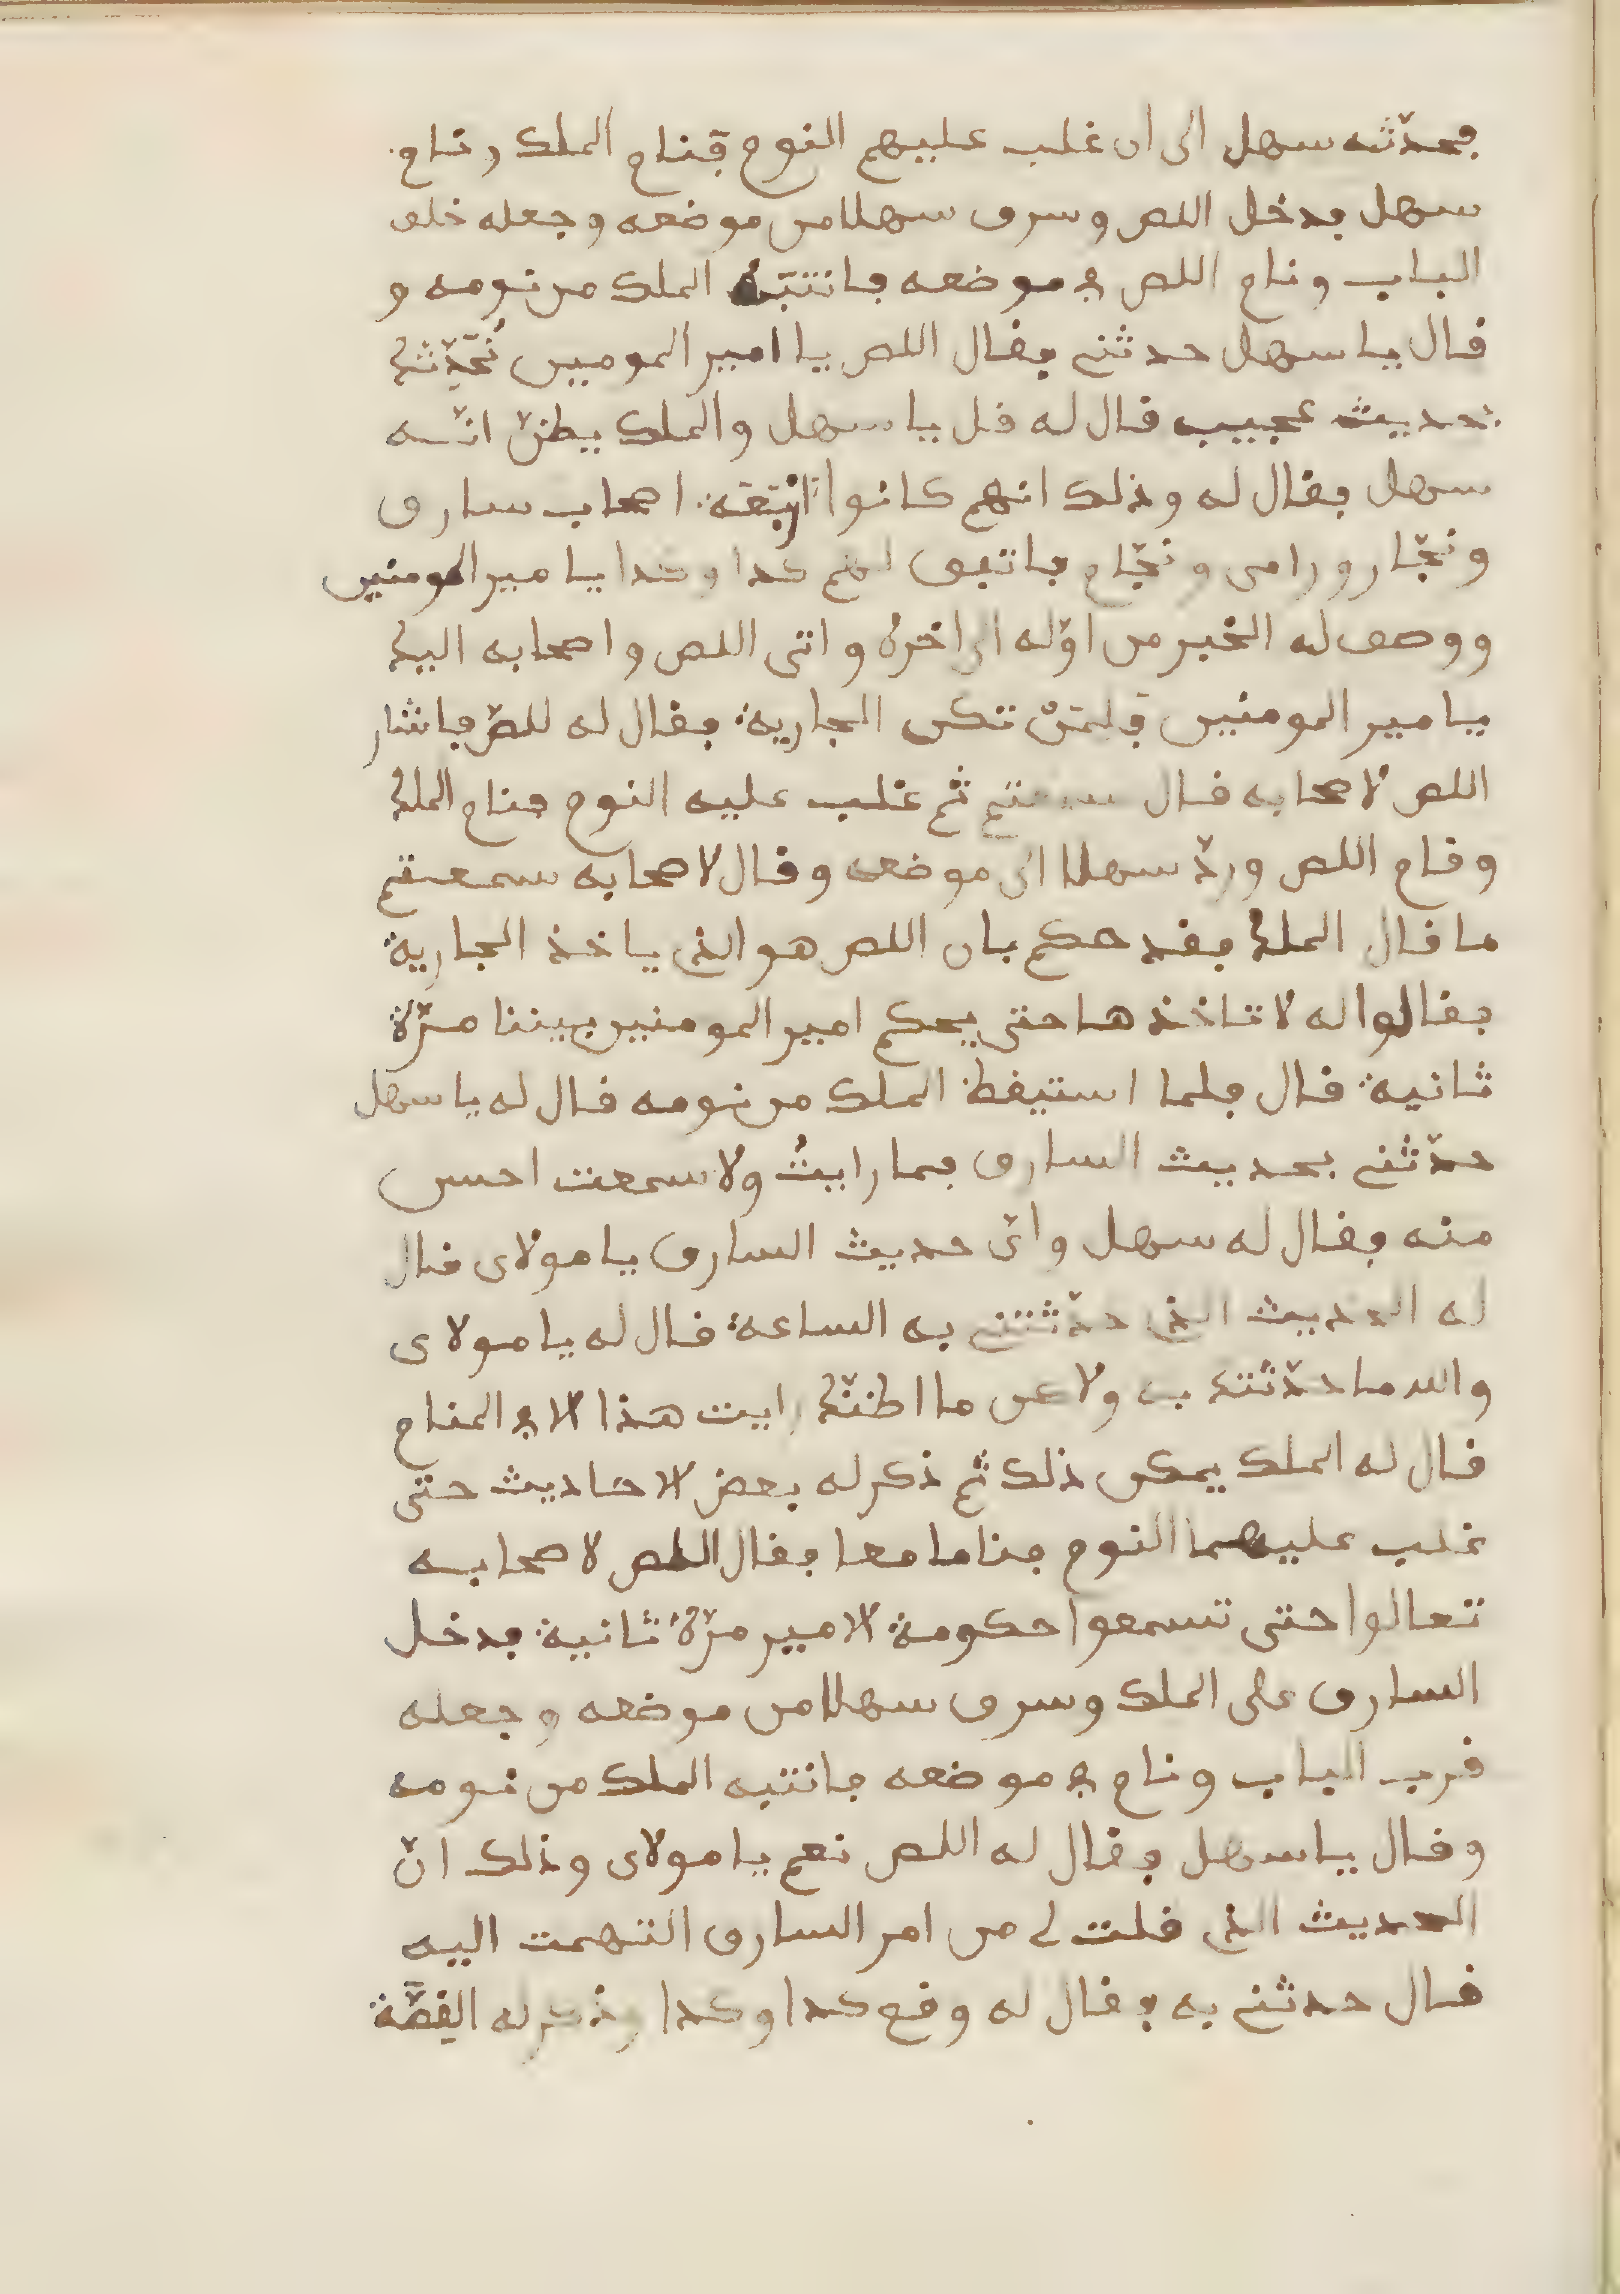 فحدّثه سهل الى ان غلب عليهم النوم فنام الملك ونام
سهل فدخل اللص وسرق سهلا من موضعه وجعله خلف
الباب ونام اللص في موضعه فانتبه الملك من نومه و
قال يا سهل حدثني فقال اللص يا امير المومنين نُحَدِّثك
بحديث عجيب قال له قل يا سهل والملك يظنّ انّه
سهل فقال له وذلك انهم كانوا اربعة اصحاب سارق
ونجّار ورامى ونجّام فاتفق لهم كدا وكدا يامير المومنين
ووصف له الخبر من اوّله الى اخره واتى اللص واصحابه اليك
يامير المومنين فلمَنْ تكن الجارية فقال له للصّ فاشار
اللص لاصحابه قال سمعتم ثم غلب عليه النوم فنام الملك
وقام اللص وردّ سهلا الى موضعه وقال لاصحابه سمعتم
ما قال الملك فقد حكم بان اللص هو الذي ياخذ الجارية
فقالوا له لا تاخذها حتى يحكم امير المومنين بيننا مرّة
ثانية قال فلما استيقظ الملك من نومه قال له يا سهل
حدّثني بحديث السارق فما رايتُ ولا سمعت احسن
منه فقال له سهل واىّ حديث السارق يا مولاى قال
له الحديث الذي حدّثتني به الساعة قال له يا مولاى
والله ما حدّثتك به ولا عن ما اظنّك رايت هذا الا في المنام
قال له الملك يمكن ذلك ثم ذكر له بعض الاحاديث حتى
غلب عليهما النوم فناما معا فقال اللص لاصحابه
تعالوا حتى تسمعوا حكومة الامير مرّة ثانية فدخل
السارق على الملك وسرق سهلا من موضعه وجعله
قرب الباب ونام في موضعه فانتبه الملك من نومه
وقال يا سهل فقال له اللص نعم يا مولاى وذلك انّ
الحديث الذي قلت لي من امر السارق التهمت اليه
قال حدثني به فقال له وقع كدا وكدا وذكر له القِصَّة